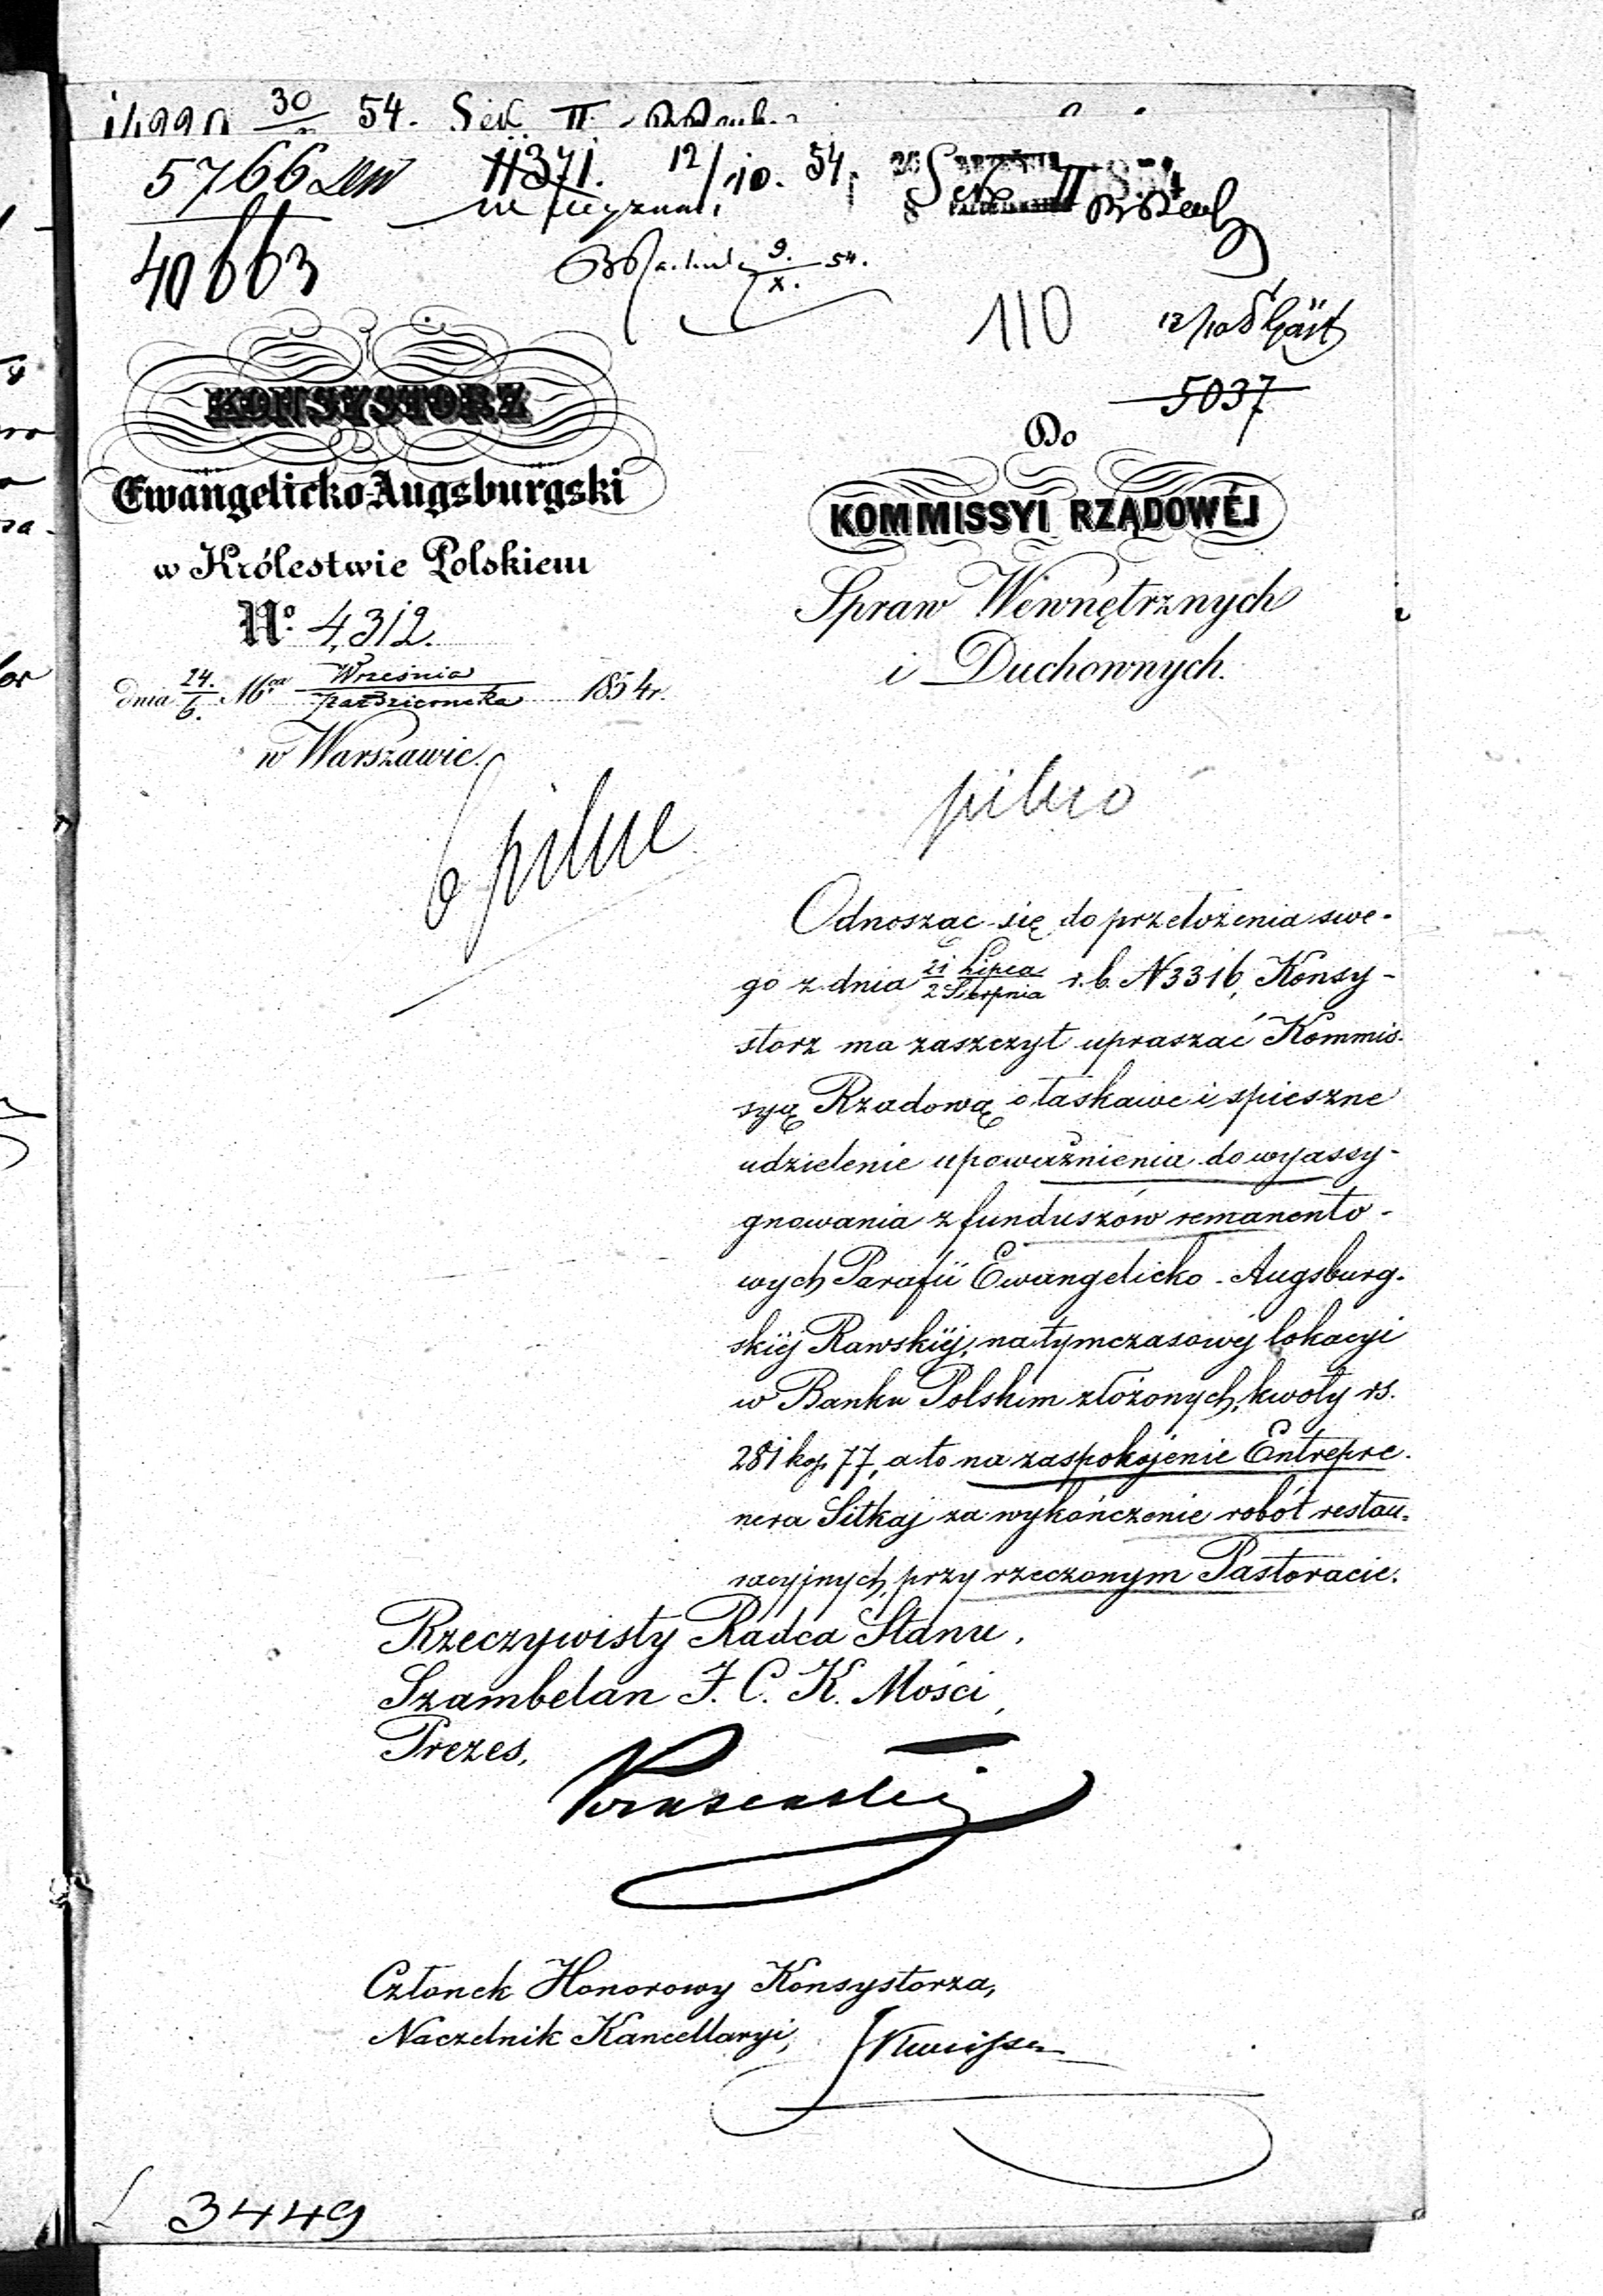 30 54. Sek. II.
5766
11371. 12/10. 54.
40663
9. 54.
X.
110
12/10
5037
KONSYSTORZ
Ewangelicko-Augsburgski
w Królestwie Polskiem
No. 4312.
dnia 24./6. Mca Września/Października 1854 r.
w Warszawie.
Do
KOMMISSYI RZĄDOWÉJ
Spraw Wewnętrznych
i Duchownych.
pilno
pilne
Odnosząc się do przełożenia swe-
go z dnia 21 Lipca/2 Sierpnia r. b. N 3316, Konsy-
storz ma zaszczyt upraszać Kommis-
syą Rządową o łaskawe i spieszne
udzielenie upoważnienia do wyassy-
gnowania z funduszów remanento-
wych Parafii Ewangelicko-Augsburg-
skiéj Rawskiéj, na tymczasowéj lokacyi
w Banku Polskim złożonych, kwoty rs.
281 kop. 77, a to na zaspokojenie Entrepre-
nera Sitkaj za wykończenie robót restau-
racyjnych, przy rzeczonym Pastoracie.
Rzeczywisty Radca Stanu,
Szambelan J. C. K. Mości,
Prezes,
Członek Honorowy Konsystorza,
Naczelnik Kancellaryi,
3449